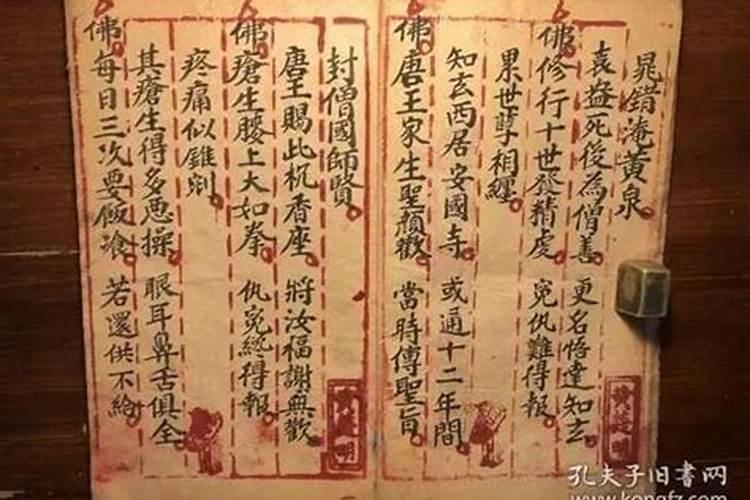 晁錯淹黃泉
袁盎死後為僧善 更名悟達知玄
佛修行十世發精虔 冤仇難得報
累世孽相纏
知玄西居安國寺 或通十二年間
佛唐王家生聖顏歡 當時傳聖旨
封僧國師賢
唐王賜此机香座 將汝福謝無歡
佛瘡生膝上大如拳 仇冤終得報
疼痛似錐剜
其瘡生得多悪操 眼耳鼻舌俱全
佛每日三次要飯飡 若還供不給
孔夫子旧书网
www.kongfz.com